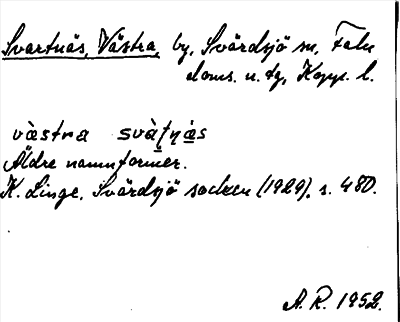 Svartnäs, Västra, by, Svärdsjö sn, Falu
doms. n. tg, Kopp. l.
västra svàʈɳä̀s
Äldre namnformer.
K. Linge, Svärdsjö socken (1929), s. 480.
A. R. 1952.